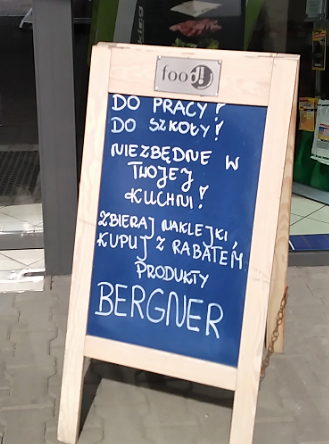 food!
DO PRACY!
DO SZKOŁY!
NIEZBĘDNE W
TWOJEJ
KUCHNI!
ZBIERAJ NAKLEJKI,
KUPUJ Z RABATEM
PRODUKTY
BERGNER